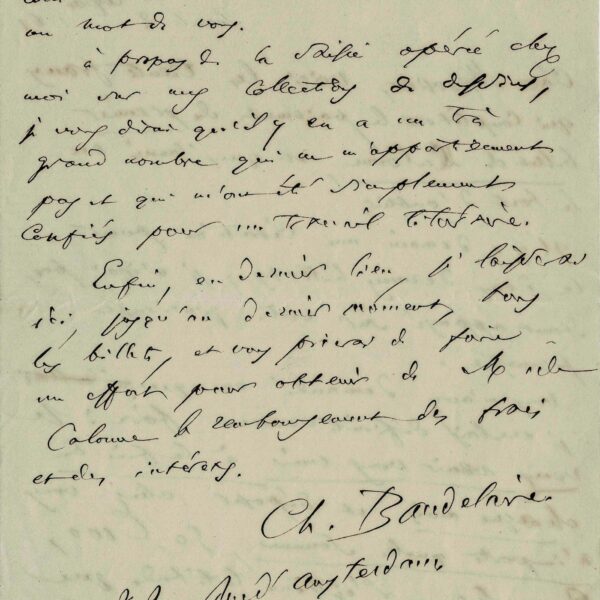 un mot de vous.
à propos de la saisie opérée chez
moi sur mes collections de dessins,
je vous dirai qu'il y en a un très
grand nombre qui ne m'appartiennent
pas et qui m'ont été simplement
confiés pour un travail littéraire.
Enfin, en dernier lieu, je laisserai
ici, jusqu'au dernier moment, tous
les billets, et vous prierai de faire
un effort pour obtenir de M de
Calonne le remboursement des frais
et des intérêts.
Ch. Baudelaire.
rue d'amsterdam